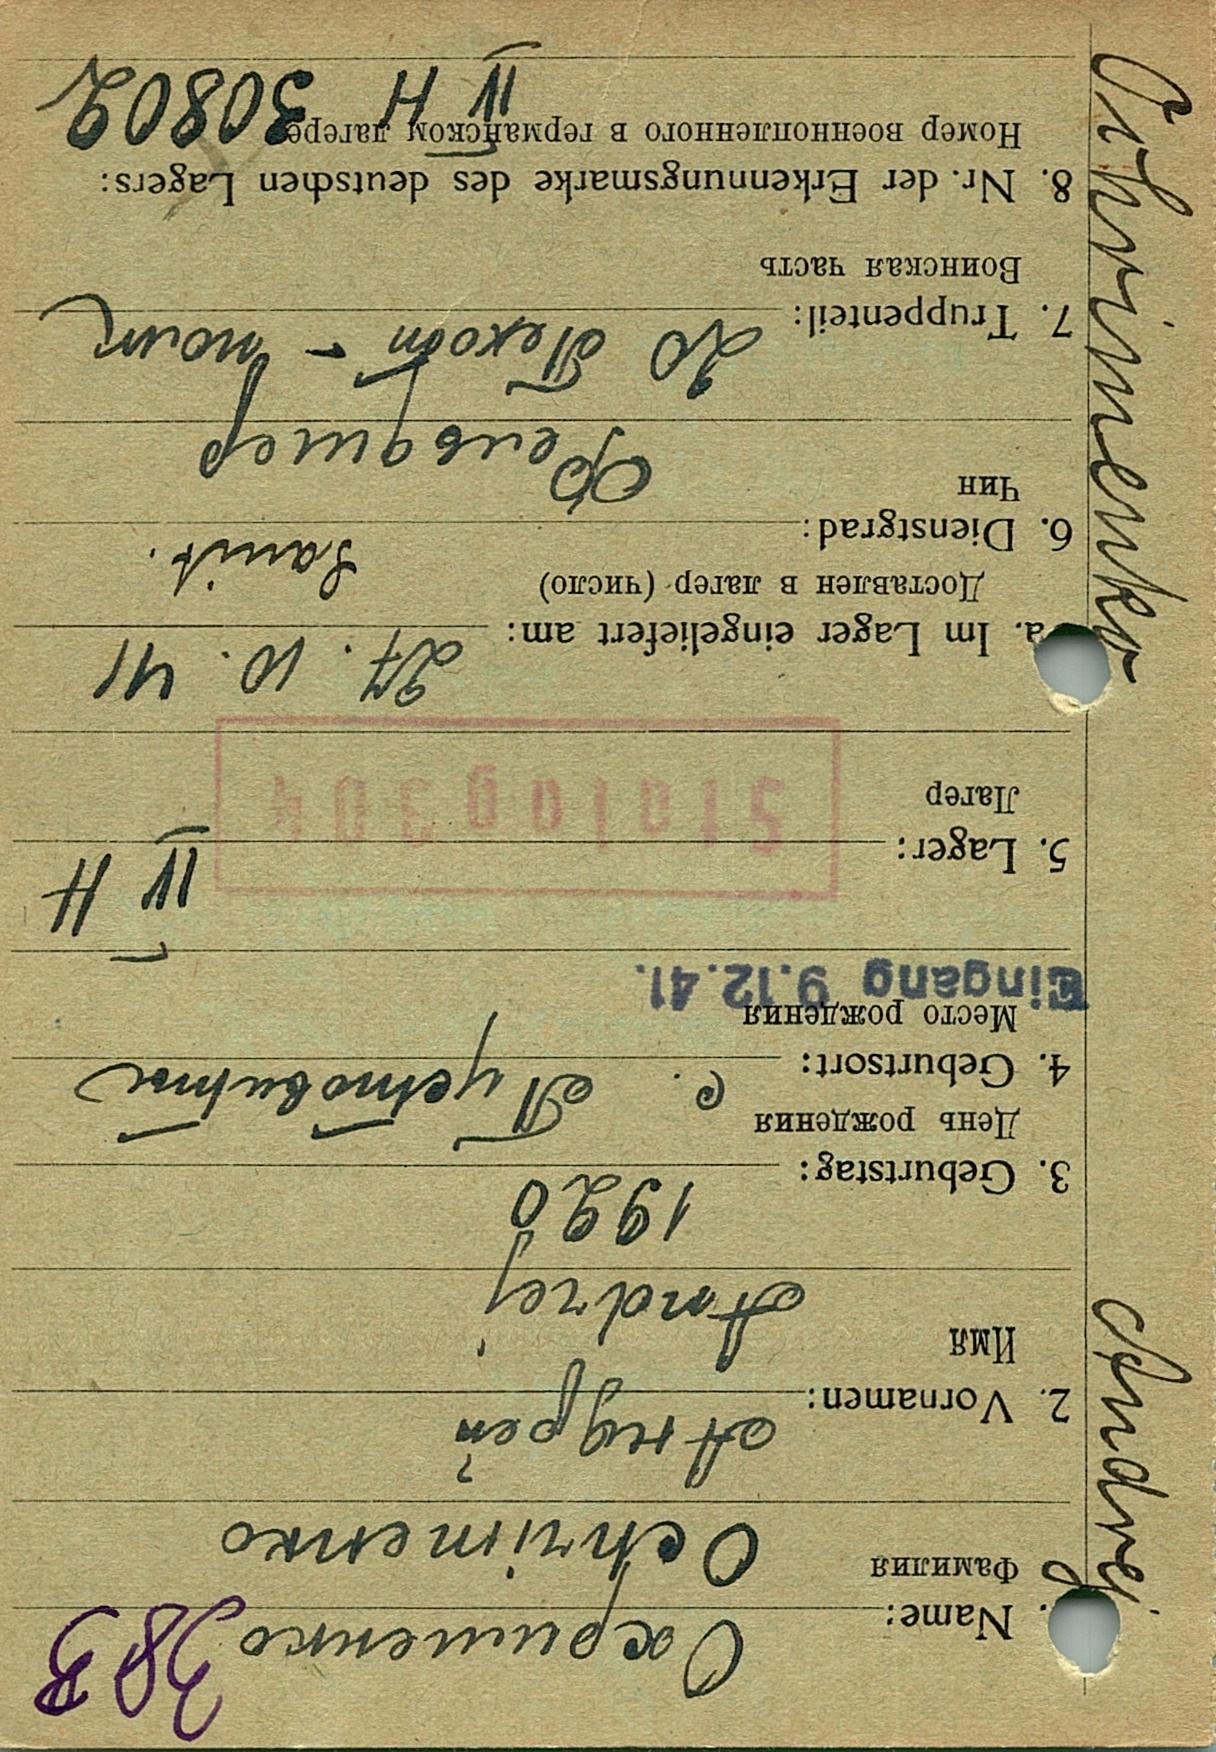 38B
1. Name: Охрименко
Фамилия Ochrimenko
2. Vornamen: Андрей
Имя Andrej
3. Geburtstag: 1920
День рождения
4. Geburtsort: с.
Место рождения
Eingang 9.12.41.
5. Lager: IV H
Лагер
Stalag 304
a. Im Lager eingeliefert am: 27. 10. 41
Доставлен в лагер (число)
Sanit.
6. Dienstgrad:
Чин Фельдшер
7. Truppenteil: 20 Пехот - полк
Воинская часть
8. Nr. der Erkennungsmarke des deutschen Lagers:
Номер военнопленного в германском лагере
IV H 30802
Ochrimenko Andrej